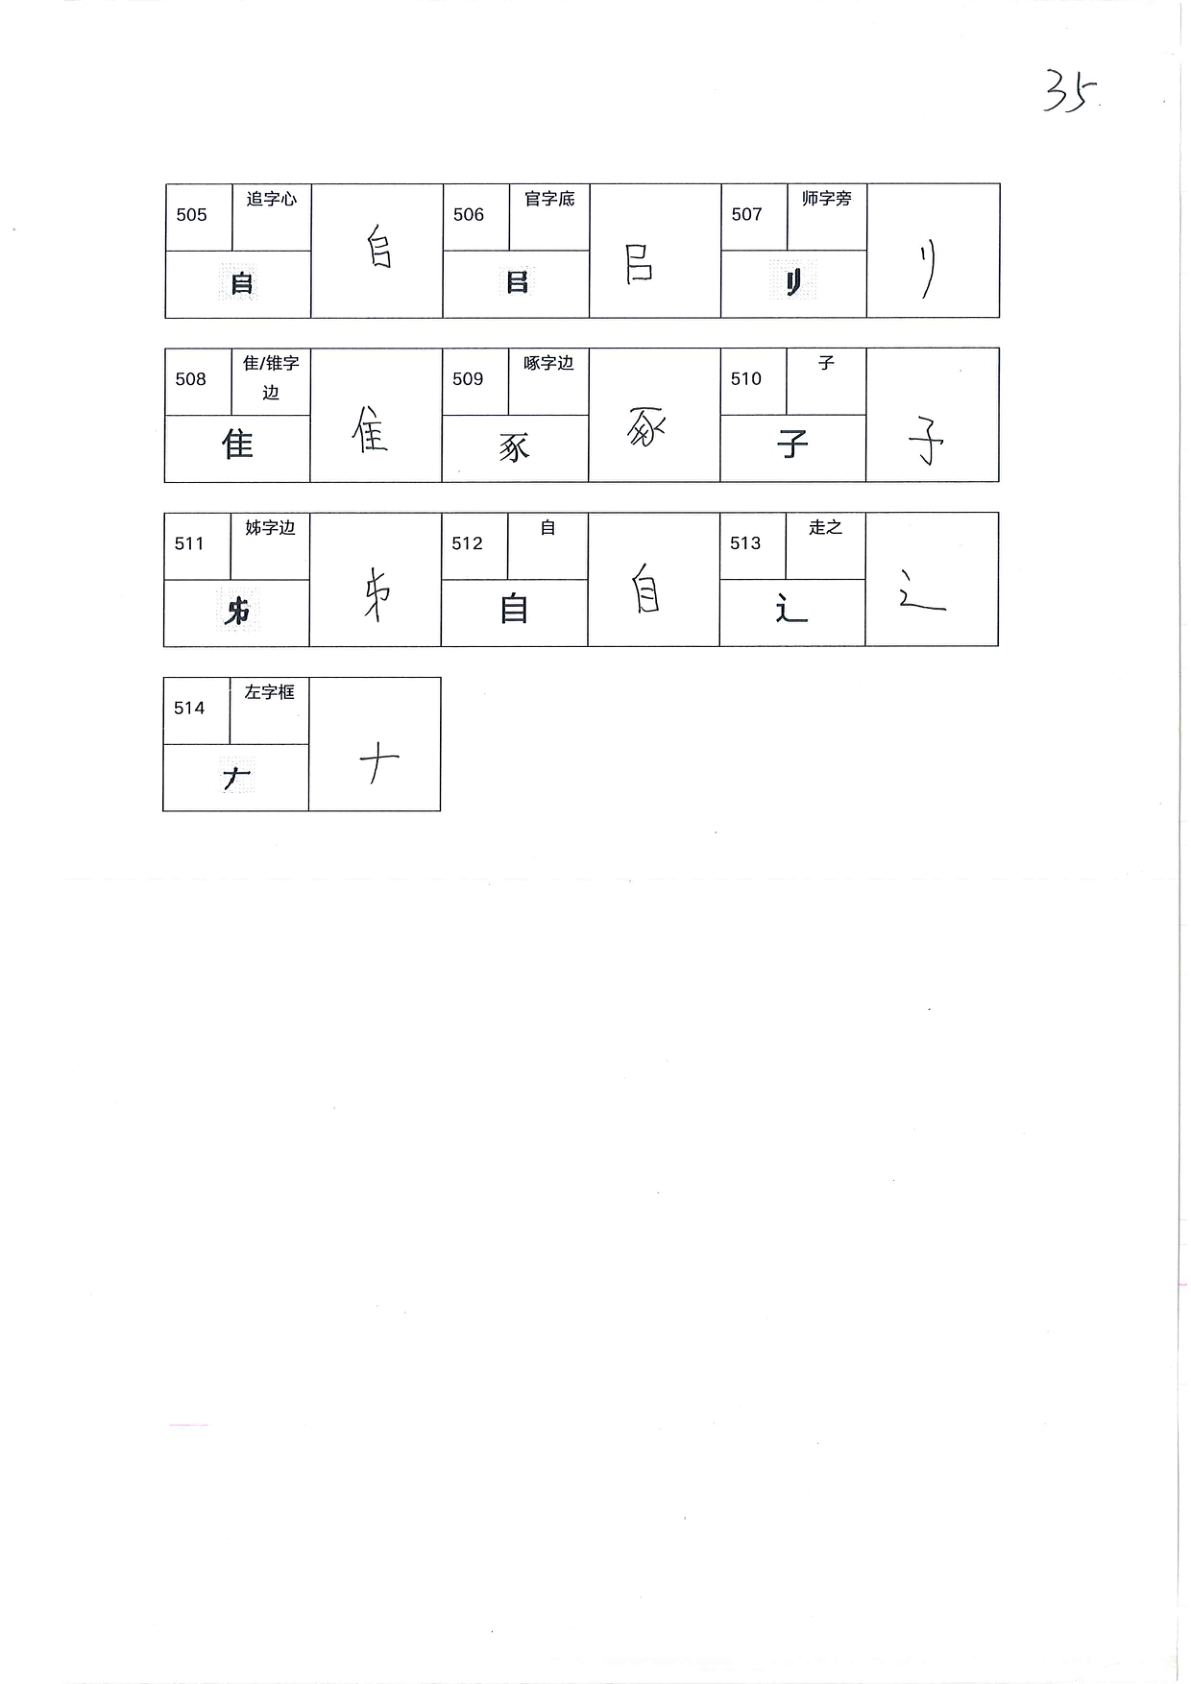 35
505 追字心 𠂤 𠂤
506 官字底 㠯 㠯
507 师字旁 刂 刂
508 隹/锥字边 隹 隹
509 啄字边 豖 豖
510 子 子 子
511 姊字边 𠂔 𠂔
512 自 自 自
513 走之 辶 辶
514 左字框 𠂇 𠂇